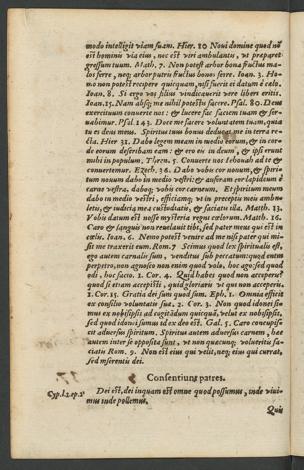 modo intelligit viam suam. Hier. 10 Novi domine quod nõ
est hominis via eius, nec est viri ambulantu, ut præparet
gressum tuum. Math. 7. Non potest arbor bona fructus ma-
los ferre, neq; arbor putris fructus bonos ferre. Ioan. 3. Ho-
mo non potest recipere quicquam, nisi fuerit ei datum è cælo.
Ioan. 8. Si ergo vos filius vindicaverit vere liberi eritis.
Ioan. 15. Nam absq; me nihil potestis facere. Psal. 80. Deus
exercituum converte nos: & lucere fac faciem tuam & ser-
vabimur. Psal. 143. Doce me facere voluntatem tuam, quia
tu es deus meus. Spiritus tuus bonus deducat me in terra re-
cta. Hier 31. Dabo legem meam in medio eorum, & in cor-
de eorum describam eam: & ero eis in deum, & ipsi erunt
mihi in populum. Thren. 5. Converte nos Iehovah ad te &
convertemur. Ezech. 36. Dabo vobis cor novum, & spiri-
tum novum dabo in medio vestri: & auferam cor lapideum è
carne vestra, daboq; vobis cor carneum. Et spiritum meum
dabo in medio vestri, efficiamq; ut in preceptis meis ambu-
letis, & iudicia mea custodiatis, & faciatis illa. Matth. 13.
Vobis datum est nosse mysteria regni cælorum. Matth. 16.
Caro & sanguis non revelavit tibi, sed pater meus qui est in
cælis. Ioan. 6. Nemo potest venire ad me nisi pater qui mi-
sit me traxerit eum. Rom. 7 Scimus quod lex spiritualis est,
ego autem carnalis sum, venditus sub peccatum: quod enim
perpetro, non agnosco non enim quod volo, hoc ago: sed quod
odi, hoc facio. 1. Cor. 4. Quid habes quod non acceperis?
quod si etiam accepisti, quid gloriaris ut qui non acceperis.
1. Cor. 15 Gratia dei sum quod sum. Eph. 1. Omnia efficit
ex consilio voluntatis suæ. 2. Cor. 3. Non quod idonei si-
mus ex nobisipsis ad cogitãdum quicquã, velut ex nobisipsis,
sed quod idonei sumus id ex deo est. Gal. 5. Caro concupis-
cit adversus spiritum. Spiritus autem adversus carnem, hæc
autem inter se opposita sunt, ut non quæcunq; volueritis fa-
ciatis Rom. 9. Non est eius qui velit, neq; eius qui currat,
sed miserentis dei.
Consentiunt patres.
Cyp. l.2. ep. 2 Dei est, dei inquam est omne quod possumus, inde vivi-
mus inde pollemus.
Quis